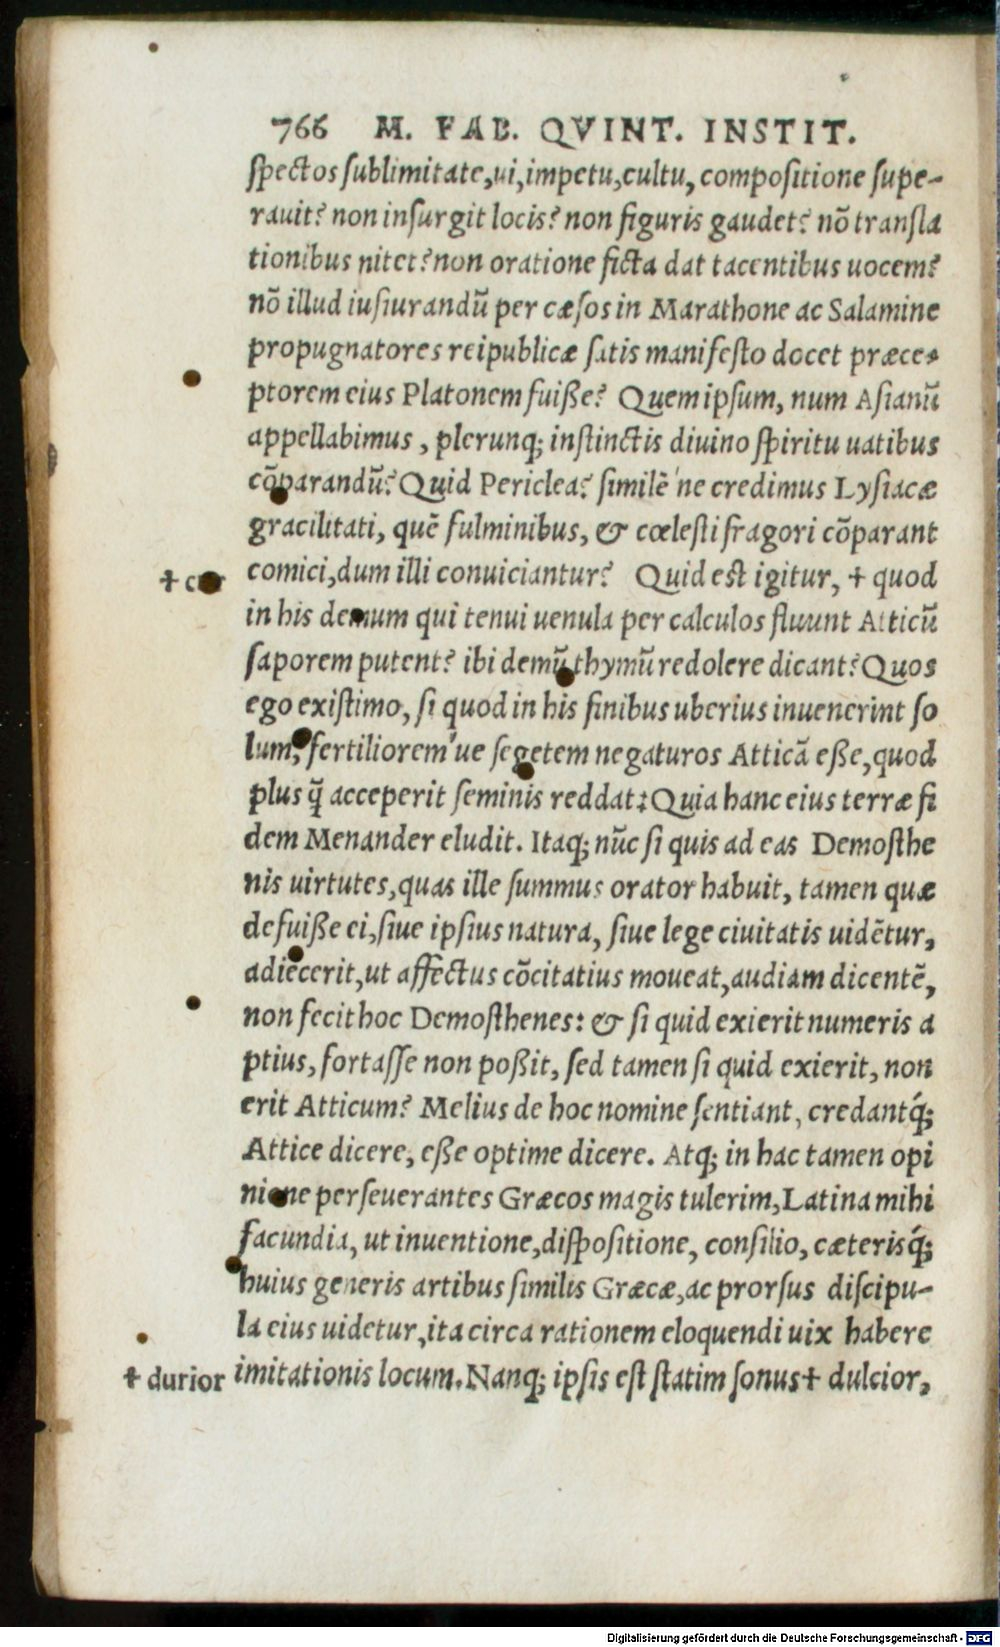 766 M. FAB. QVINT. INSTIT.
spectos sublimitate, ui, impetu, cultu, compositione supe-
rauit? non insurgit locis? non figuris gaudet? nō transla
tionibus nitet? non oratione ficta dat tacentibus uocem?
nō illud iusiurandū per cæsos in Marathone ac Salamine
propugnatores reipublicæ satis manifesto docet præce-
ptorem eius Platonem fuiße? Quem ipsum, num Asianū
appellabimus, plerunq; instinctis diuino spiritu uatibus
cōparandū? Quid Periclea? similē ne credimus Lysiacæ
gracilitati, quē fulminibus, & cœlesti fragori cōparant
comici, dum illi conuiciantur? Quid est igitur, † quod
† cur
in his demum qui tenui uenula per calculos fluunt Atticū
saporem putent? ibi demū thymū redolere dicant? Quos
ego existimo, si quod in his finibus uberius inuenerint so
lum, fertiliorem'ue segetem negaturos Atticā eße, quod
plus q̄ acceperit seminis reddat: Quia hanc eius terræ fi
dem Menander eludit. Itaq; nūc si quis ad eas Demosthe
nis uirtutes, quas ille summus orator habuit, tamen quæ
defuiße ei, siue ipsius natura, siue lege ciuitatis uidētur,
adiecerit, ut affectus cōcitatius moueat, audiam dicentē,
non fecit hoc Demosthenes: & si quid exierit numeris a
ptius, fortasse non poßit, sed tamen si quid exierit, non
erit Atticum? Melius de hoc nomine sentiant, credantq́;
Attice dicere, eße optime dicere. Atq; in hac tamen opi
nione perseuerantes Græcos magis tulerim, Latina mihi
facundia, ut inuentione, dispositione, consilio, cæterisq́;
huius generis artibus similis Græcæ, ac prorsus discipu-
la eius uidetur, ita circa rationem eloquendi uix habere
imitationis locum. Nanq; ipsis est statim sonus † dulcior,
† durior
Digitalisierung gefördert durch die Deutsche Forschungsgemeinschaft - DFG